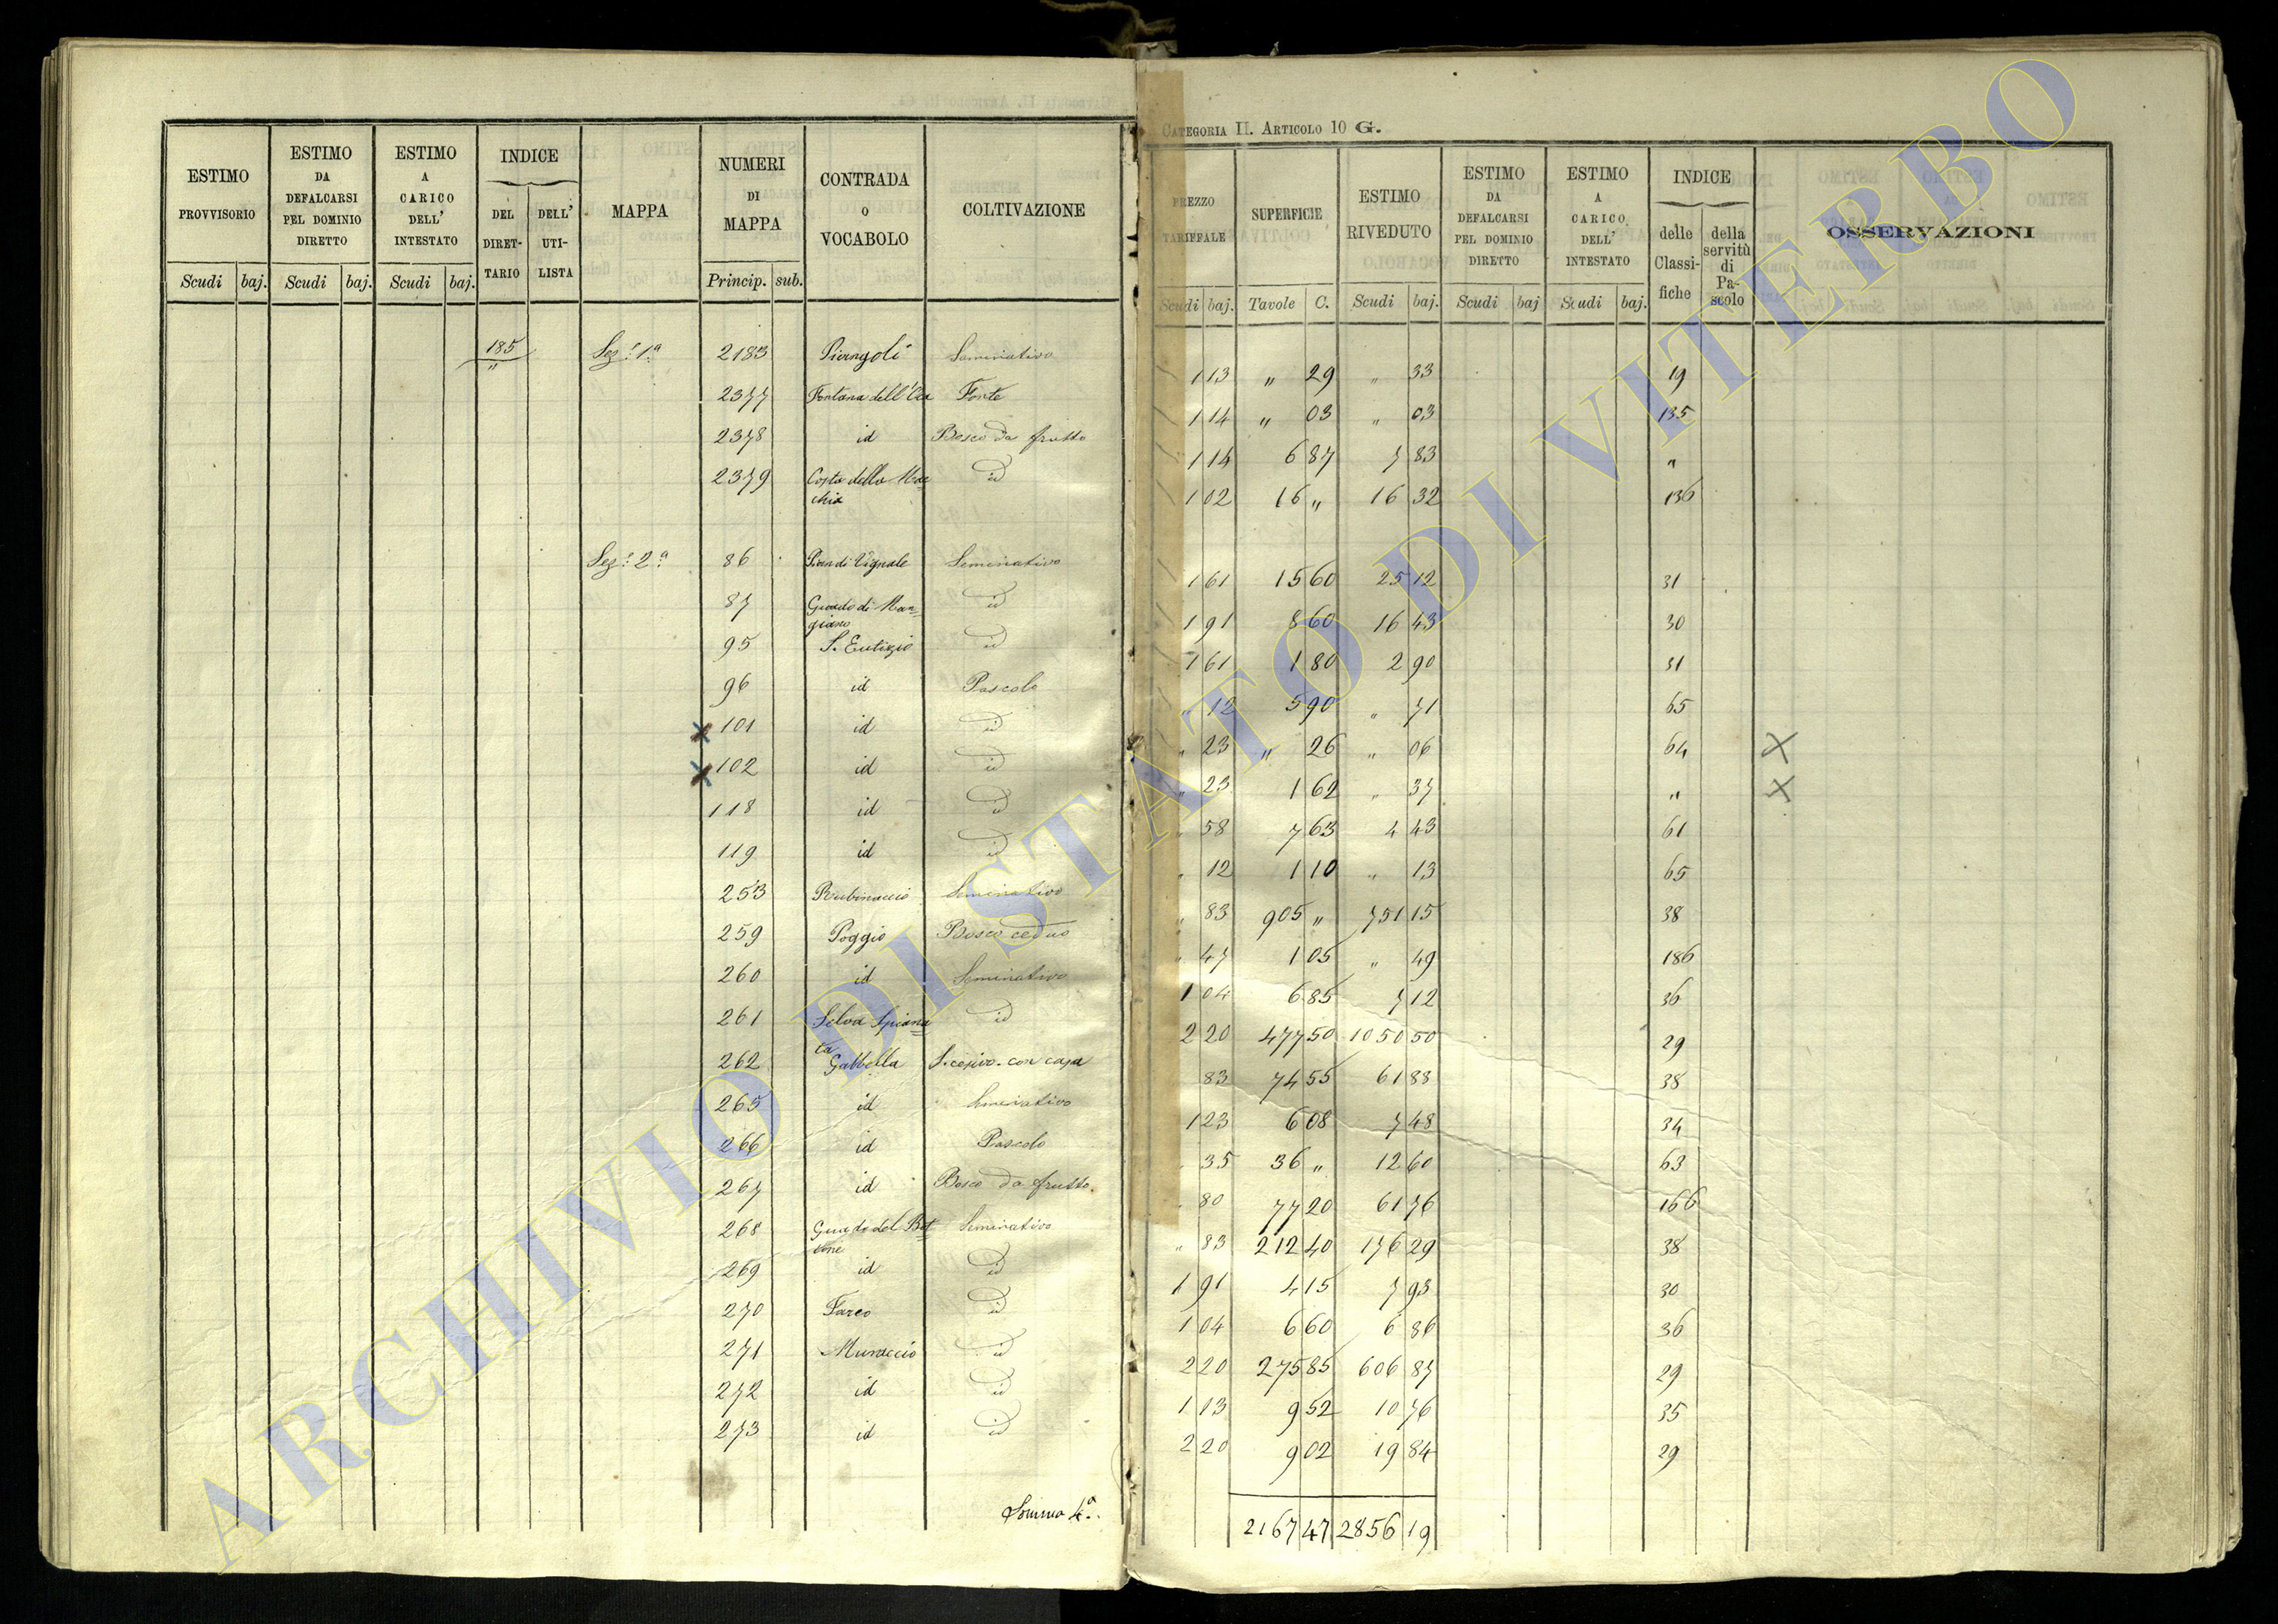 CATEGORIA II. ARTICOLO 10 G.
ESTIMO PROVVISORIO
ESTIMO DA DEFALCARSI PEL DOMINIO DIRETTO
ESTIMO A CARICO DELL' INTESTATO
INDICE
DEL DIRETTARIO
DELL' UTILISTA
MAPPA
NUMERI DI MAPPA
CONTRADA O VOCABOLO
COLTIVAZIONE
Scudi baj. Scudi baj. Scudi baj. Princip. sub.
185 Sez.e 1a 2183 Piangoli Seminativo
"
2377 Fontana dell' Fonte
2378 id Bosco da frutto
2379 Costa della Mac id
chia
Sez.e 2a 86 Pian di Vignale Seminativo
87 Guado di Man- id
giano
95 S. Eutizio id
96 id Pascolo
X 101 id id
X 102 id id
118 id id
119 id id
253 Rubinaccio Seminativo
259 Poggio Bosco ceduo
260 id Seminativo
261 Selva Spiana id
ta
262 Gabbella con casa
265 id Seminativo
266 id Pascolo
267 id Bosco da frutto
268 Guado del Bot Seminativo
tone
269 id id
270 id
271 Muraccio id
272 id id
273 id id
Somma 4a
PREZZO TARIFFALE
SUPERFICIE
ESTIMO RIVEDUTO
ESTIMO DA DEFALCARSI PEL DOMINIO DIRETTO
ESTIMO A CARICO DELL' INTESTATO
INDICE
delle Classifiche
della servitù di Pascolo
OSSERVAZIONI
Scudi baj. Tavole C. Scudi baj. Scudi baj Scudi baj.
1 13 " 29 " 33 19
1 14 " 03 " 03 135
1 14 6 87 7 83 "
1 02 16 " 16 32 136
1 61 15 60 25 12 31
1 91 8 60 16 43 30
1 61 1 80 2 90 31
" 12 5 90 " 71 65
" 23 " 26 " 06 64 X
" 23 1 62 " 37 " X
" 58 7 63 4 43 61
" 12 1 10 " 13 65
" 83 905 " 751 15 38
" 47 1 05 " 49 186
1 04 6 85 7 12 36
2 20 477 50 1050 50 29
83 74 55 61 88 38
1 23 6 08 7 48 34
" 35 36 " 12 60 63
" 80 77 20 61 76 166
" 83 212 40 176 29 38
1 91 4 15 7 93 30
1 04 6 60 6 86 36
2 20 275 85 606 87 29
1 13 9 52 10 76 35
2 20 9 02 19 84 29
2167 47 2856 19
ARCHIVIO DI STATO DI VITERBO